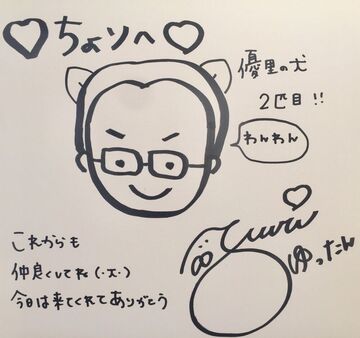 ♡ちょソへ♡
優里の犬
2匹目!!
わんわん
これからも
仲良くしてね(・x・)
今日は来てくれてありがとう
ゆったん